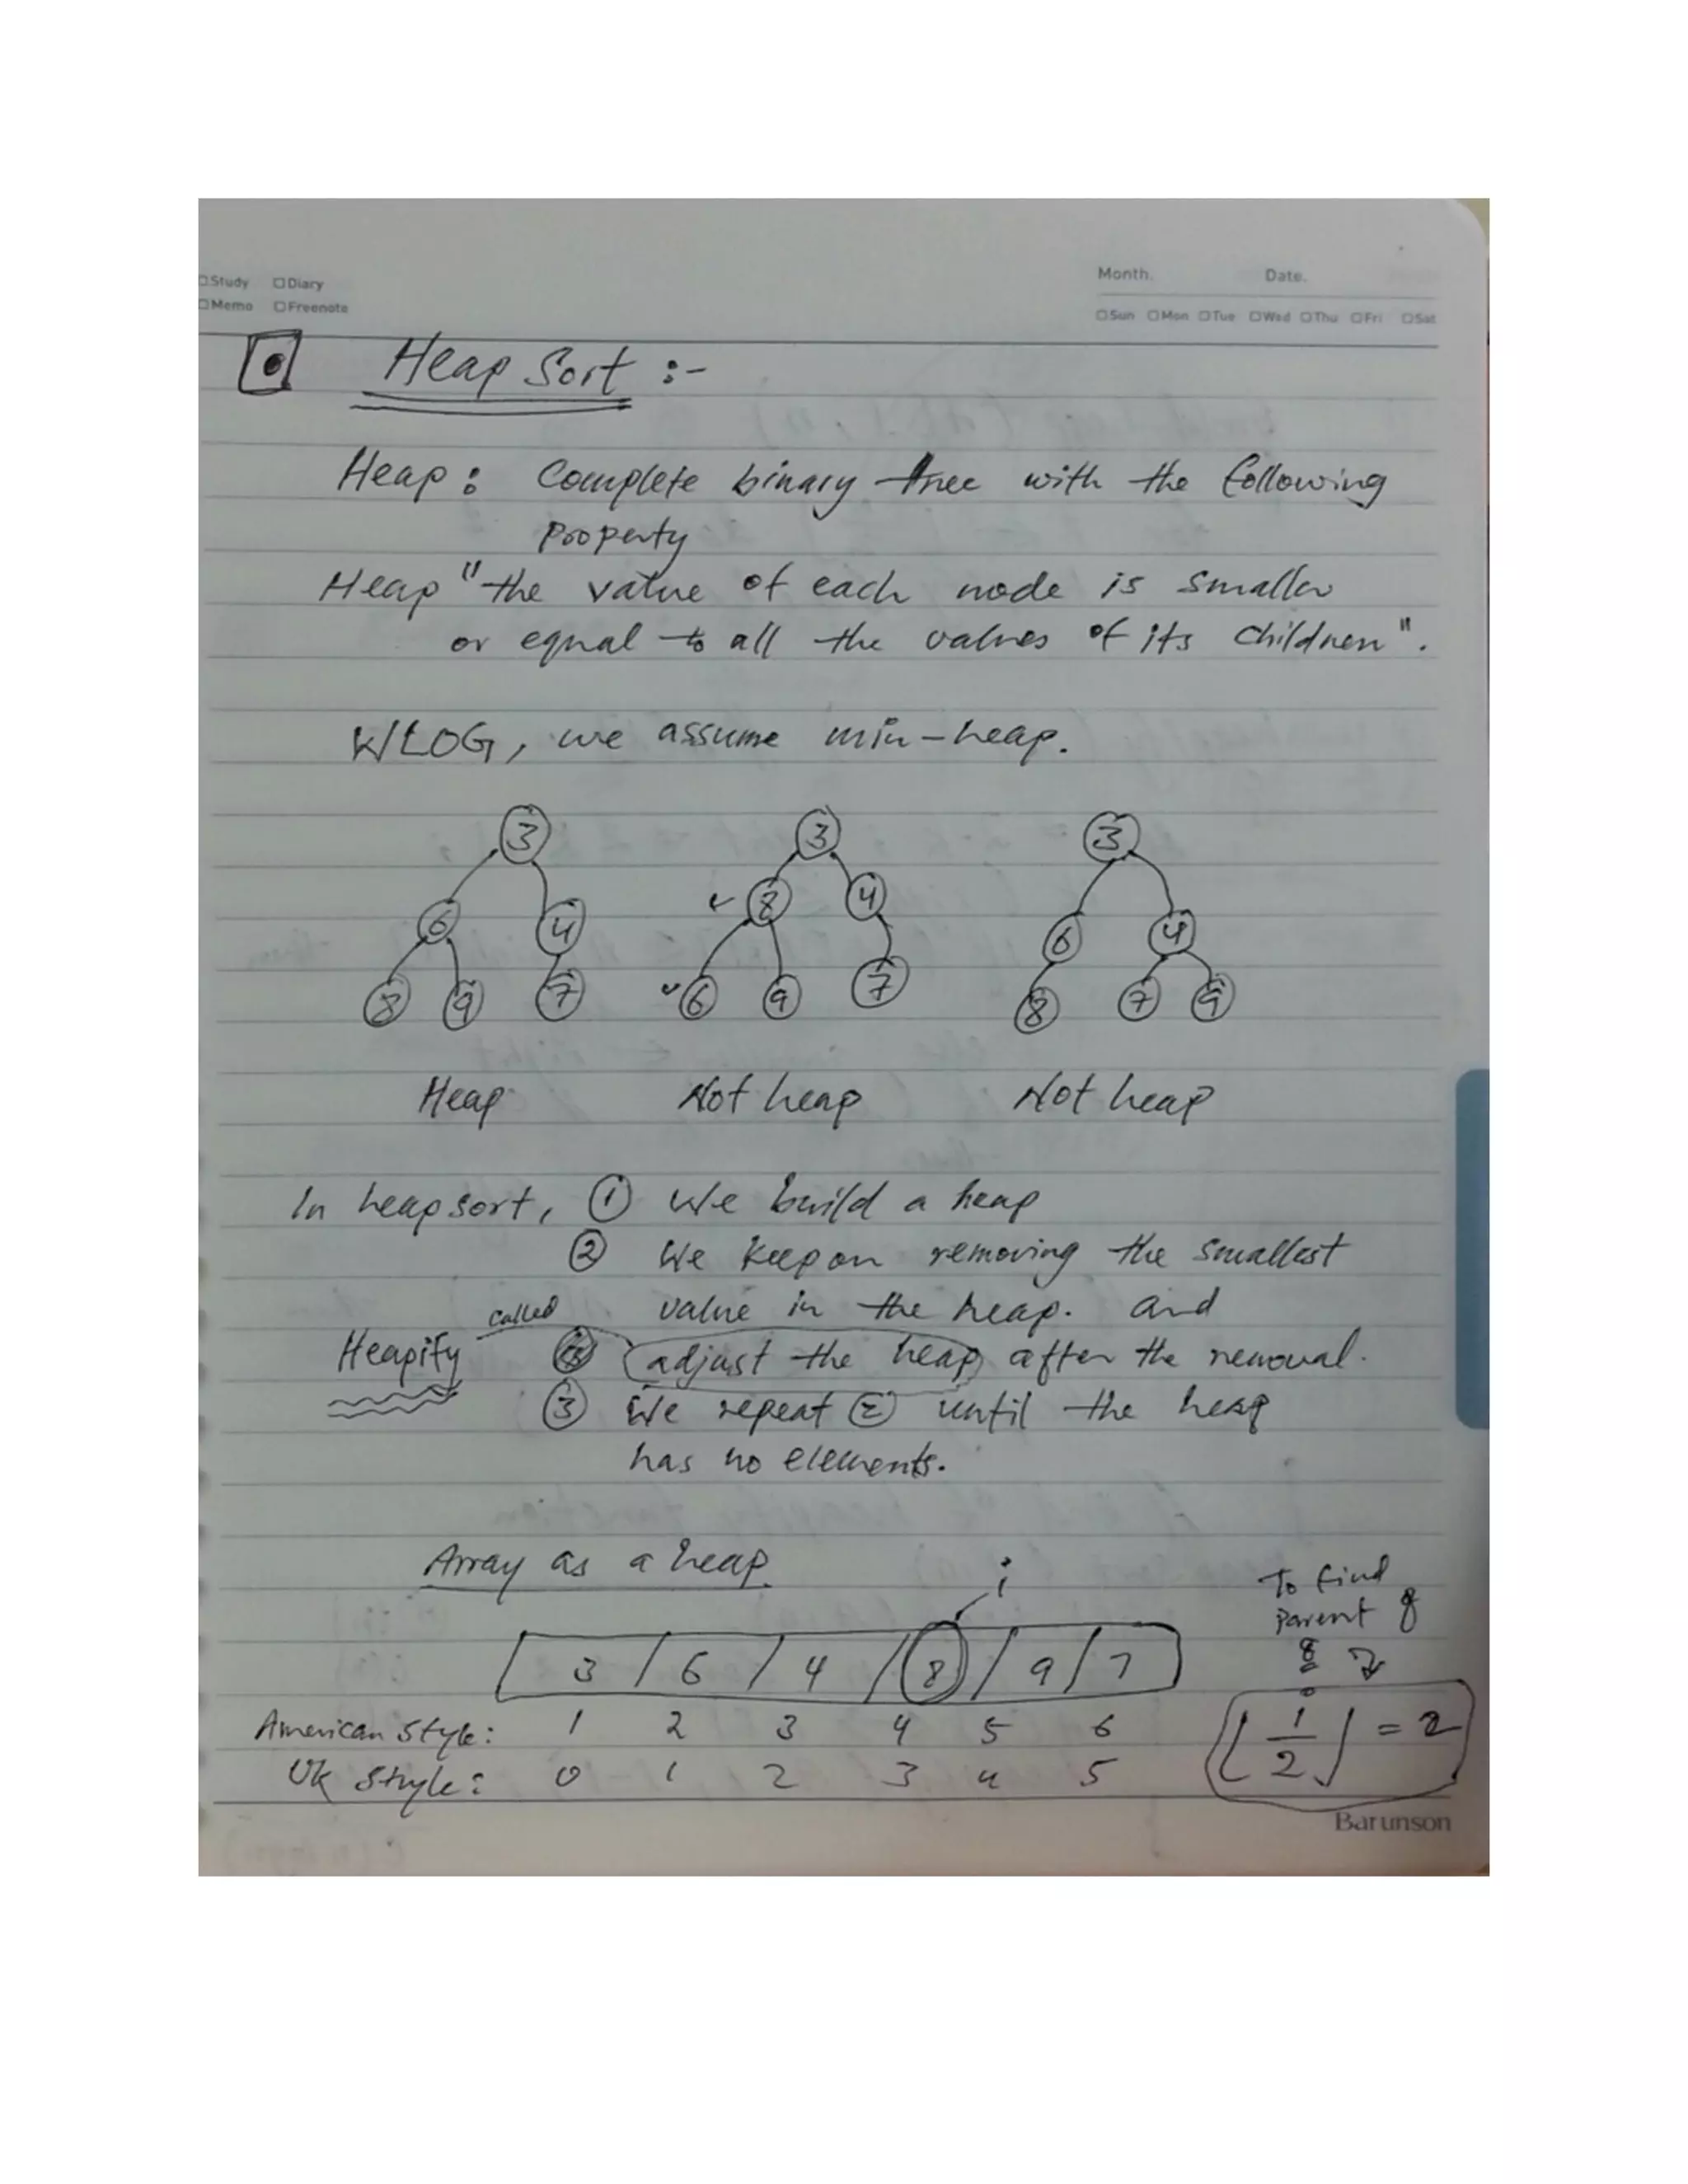 Study Diary
Memo Freenote
Month. Date.
Sun Mon Tue Wed Thu Fri Sat
Heap Sort :-
Heap: Complete binary tree with the following
property
Heap "the value of each node is smaller
or equal to all the values of its children".
WLOG, we assume min-heap.
3 3 3
6 4 8 4 6 4
8 9 7 6 9 7 8 7 9
Heap Not heap Not heap
In heapsort, ① We build a heap
② We keep on removing the smallest
value in the heap. and
called
Heapify adjust the heap after the removal.
③ We repeat ② until the heap
has no elements.
Array as a heap
i
To find
parent of
8
3 6 4 8 9 7
American Style: 1 2 3 4 5 6
UK Style: 0 1 2 3 4 5
⌊i/2⌋ = 2
Barunson